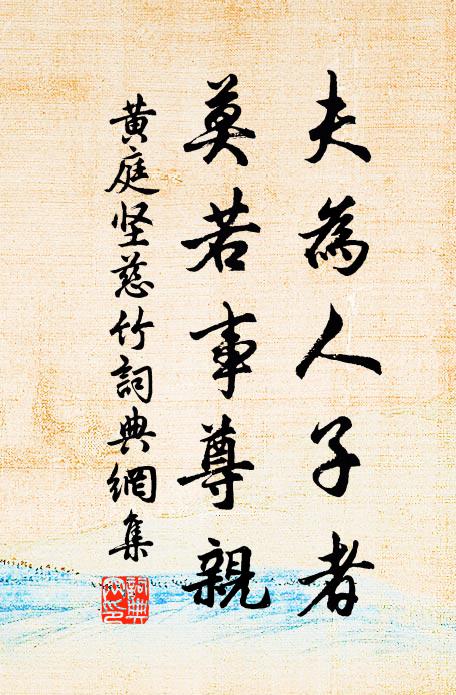 夫為人子者
莫若事尊親
黄庭坚慈竹詞典網集